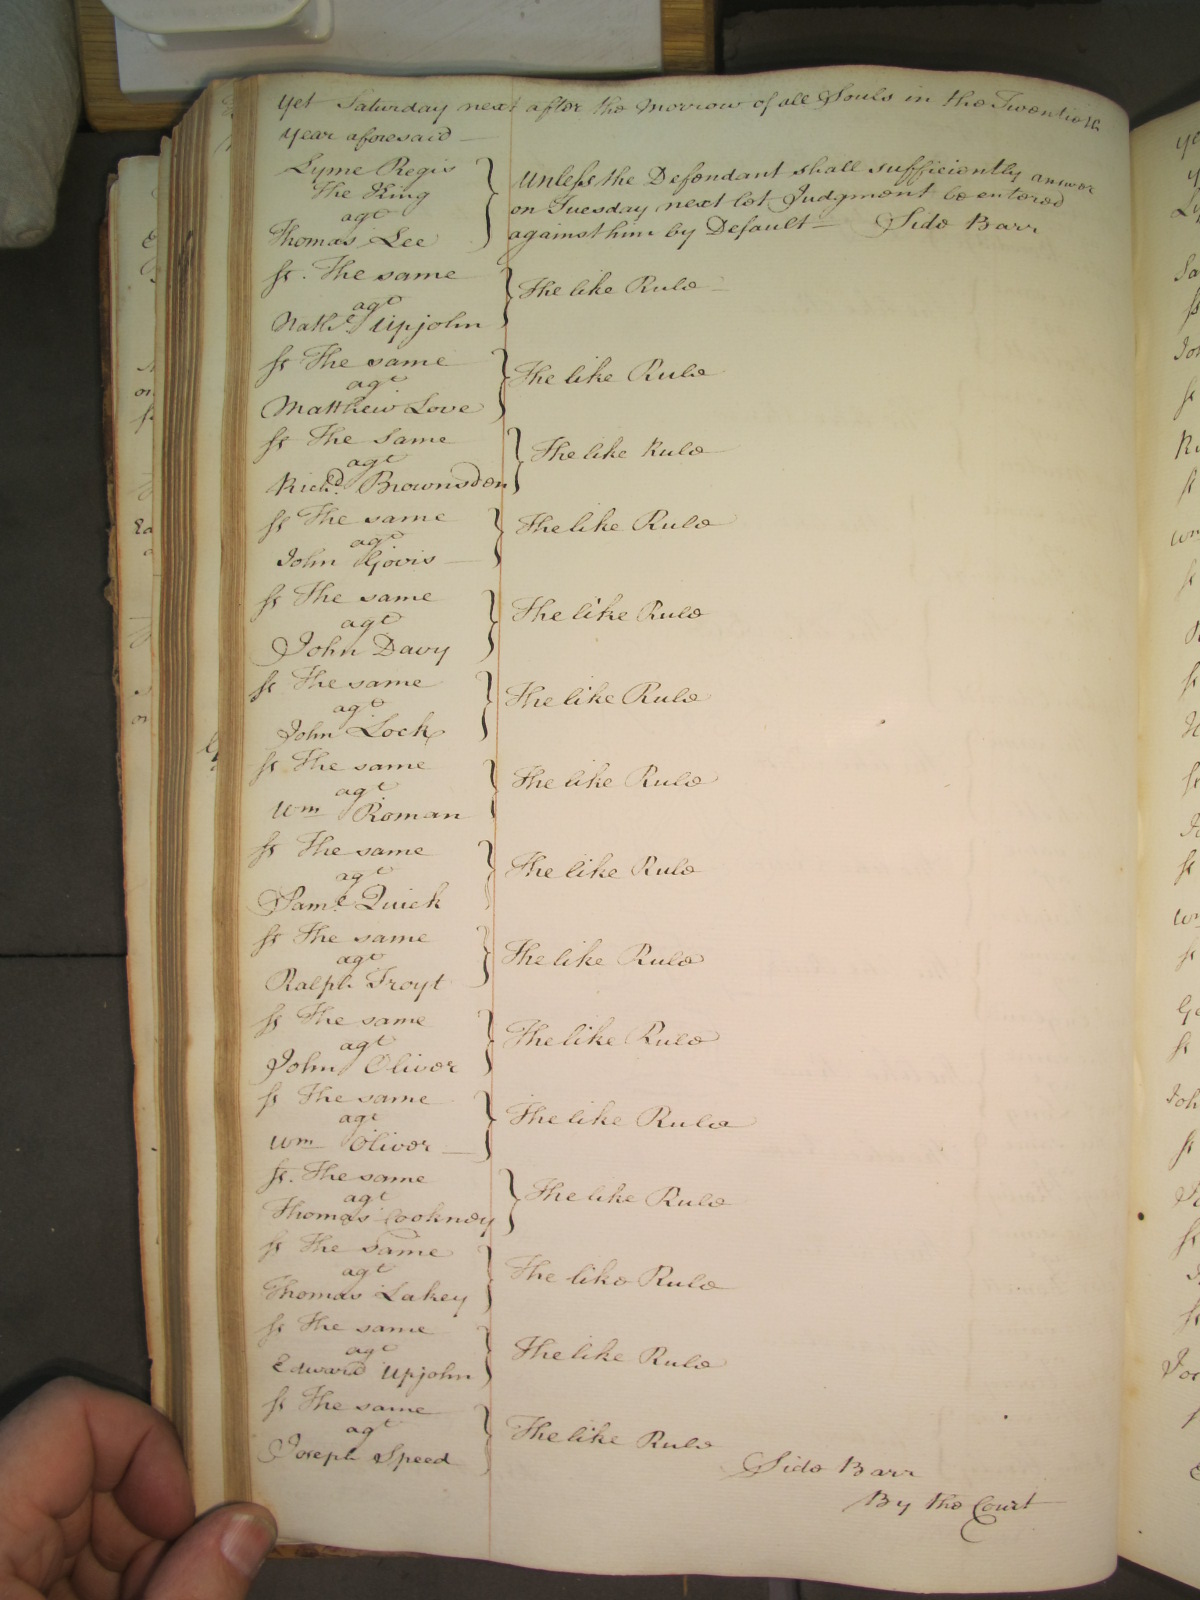 Yet Saturday next after the Morrow of all Souls in the Twentieth
Year aforesaid
Lyme Regis
The King
agt
Thomas Lee
Unless the Defendant shall sufficiently answer
on Tuesday next let Judgment be entered
against him by Default — Side Barr
st. The same
agt
Upjohn
The like Rule
st The same
agt
Matthew Love
The like Rule
st The Same
agt
Richd. Brownsdon
The like Rule
st The same
agt
John Govis
The like Rule
st The same
agt
John Davy
The like Rule
st The same
agt
John Lock
The like Rule
st The same
agt
Wm Roman
The like Rule
st The same
agt
Saml. Quick
The like Rule
st The same
agt
Ralph Troyt
The like Rule
st The same
agt
John Oliver
The like Rule
st The same
agt
Wm Oliver
The like Rule
st. The same
agt
Thomas Cookney
The like Rule
st The same
agt
Thomas Lakey
The like Rule
st The same
agt
Edward Upjohn
The like Rule
st The same
agt
Joseph Speed
The like Rule
Side Barr
By the Court